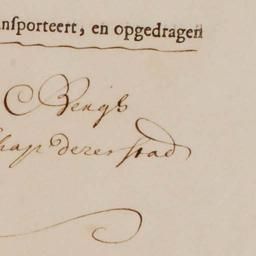 nsporteert, en opgedragen
Bergh
hap dezer stad